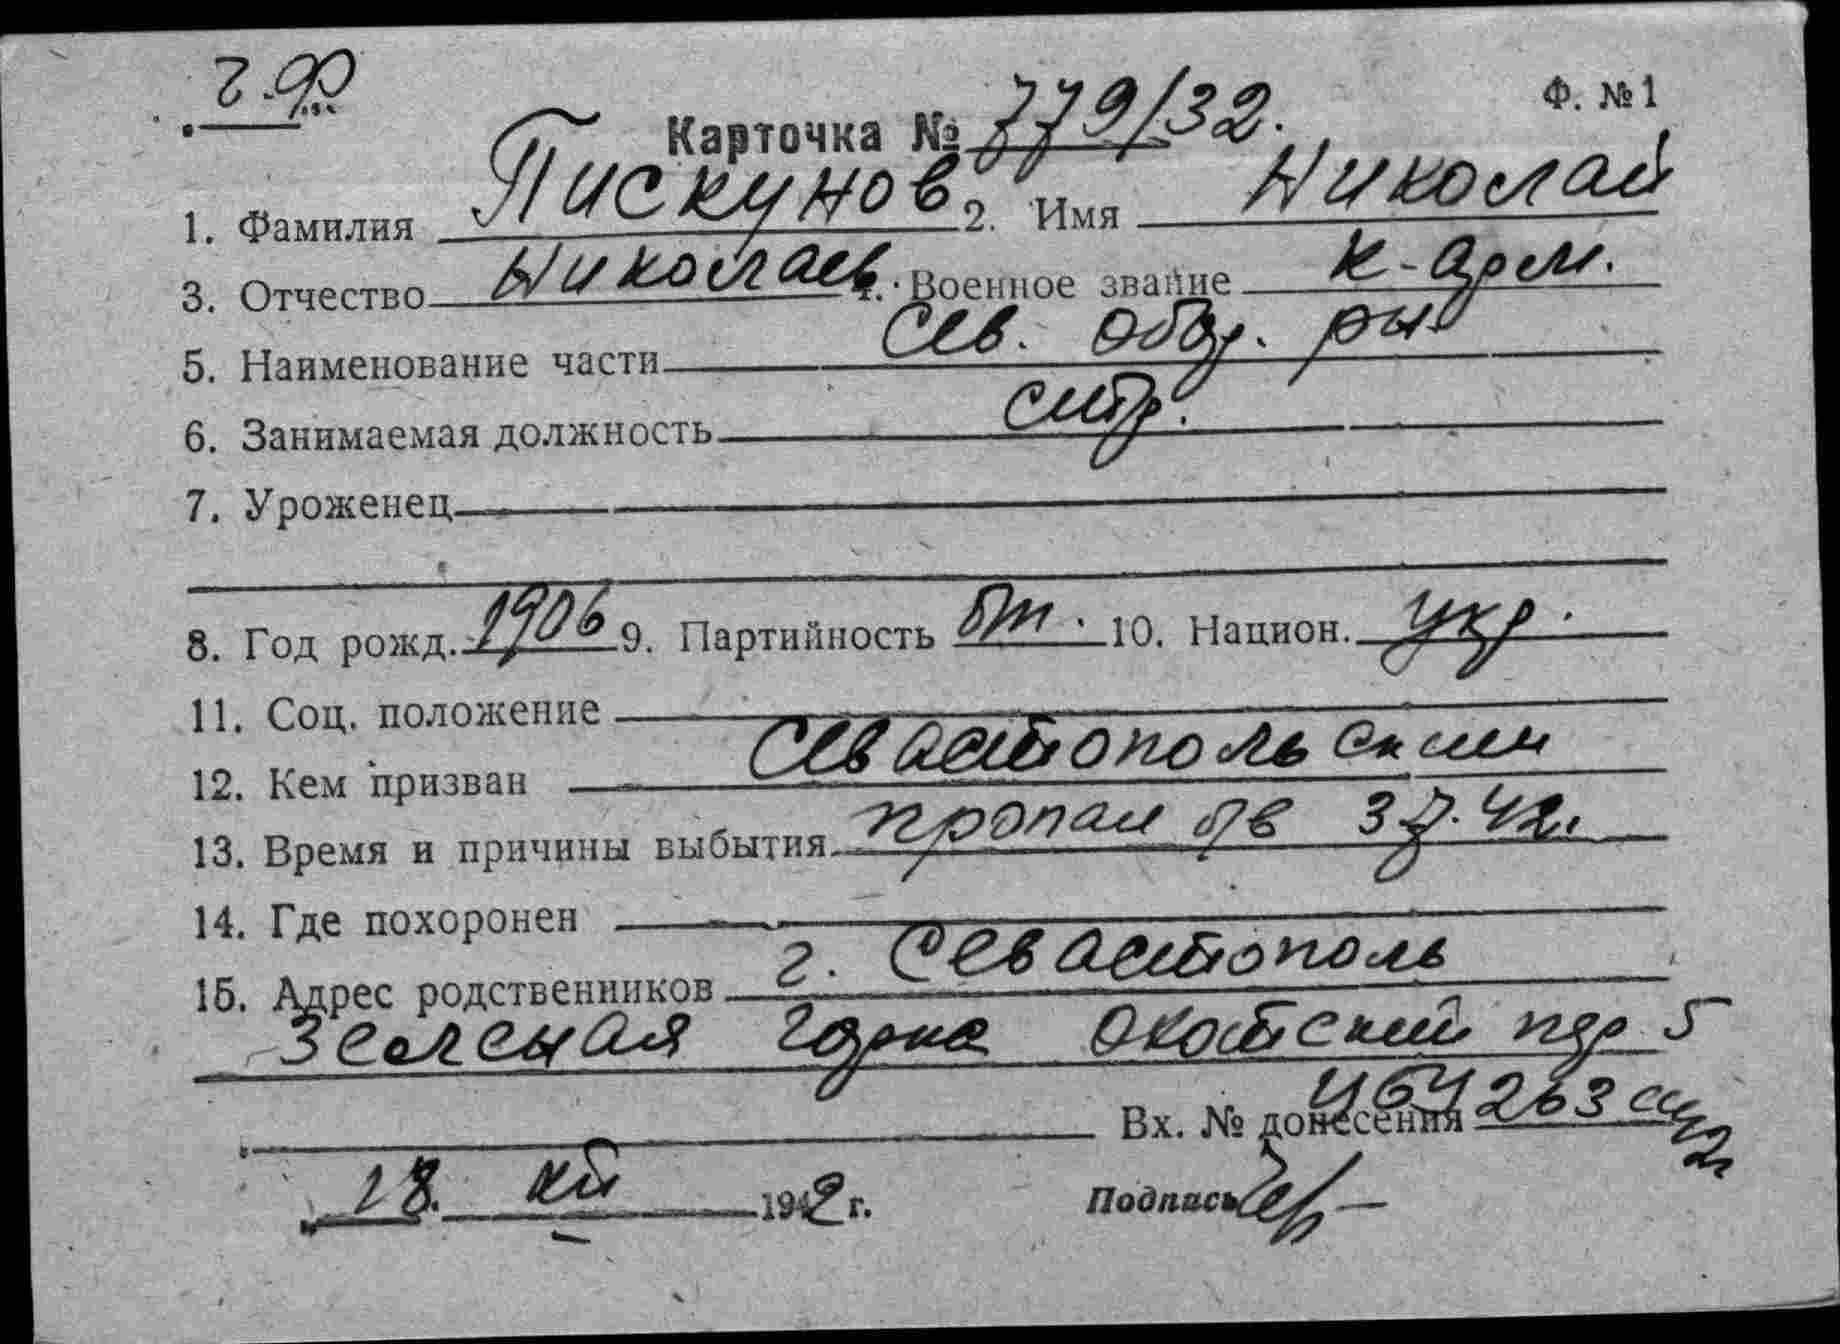 Ф. №1
Карточка № 779/32.
1. Фамилия Пискунов 2. Имя Николай
3. Отчество Николаев 4. Военное звание к-арм.
5. Наименование части Сев. обор. р-н
6. Занимаемая должность стр.
7. Уроженец
8. Год рожд. 1906 9. Партийность бп. 10. Национ. укр.
11. Соц. положение
12. Кем призван Севастопольским
13. Время и причины выбытия пропал б/в 3 7. 42г.
14. Где похоронен
15. Адрес родственников г. Севастополь
Зеленая горка 5
Вх. № донесения 263
18. 1942 г. Подпись